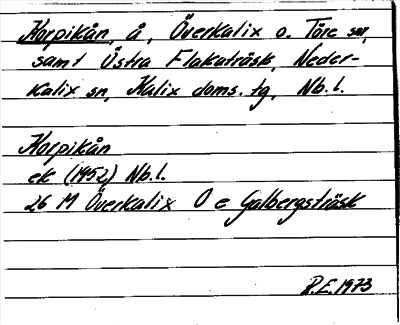 Korpikån, å, Överkalix o. Töre sn,
samt Östra Flakaträsk, Neder-
kalix sn, Kalix doms. tg, Nb. l.
Korpikån
ek (1952) Nb. l.
26 M Överkalix O e Galbergsträsk
R.E. 1973